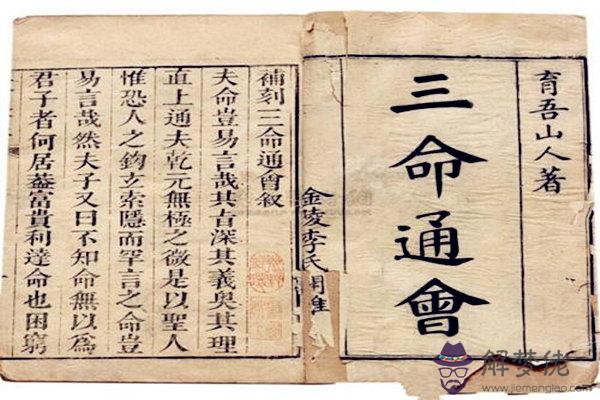 育吾山人著
三命通會
金陵李氏
補刻三命通會叙
夫命豈易言哉其旨深其義奧其理
直上通夫乾元無極之微是以聖人
惟恐人之鈎玄索隱而罕言之命豈
易言哉然夫子又曰不知命無以為
君子者何居蓋富貴利達命也困窮
解梦佬
www.jiemenglao.com